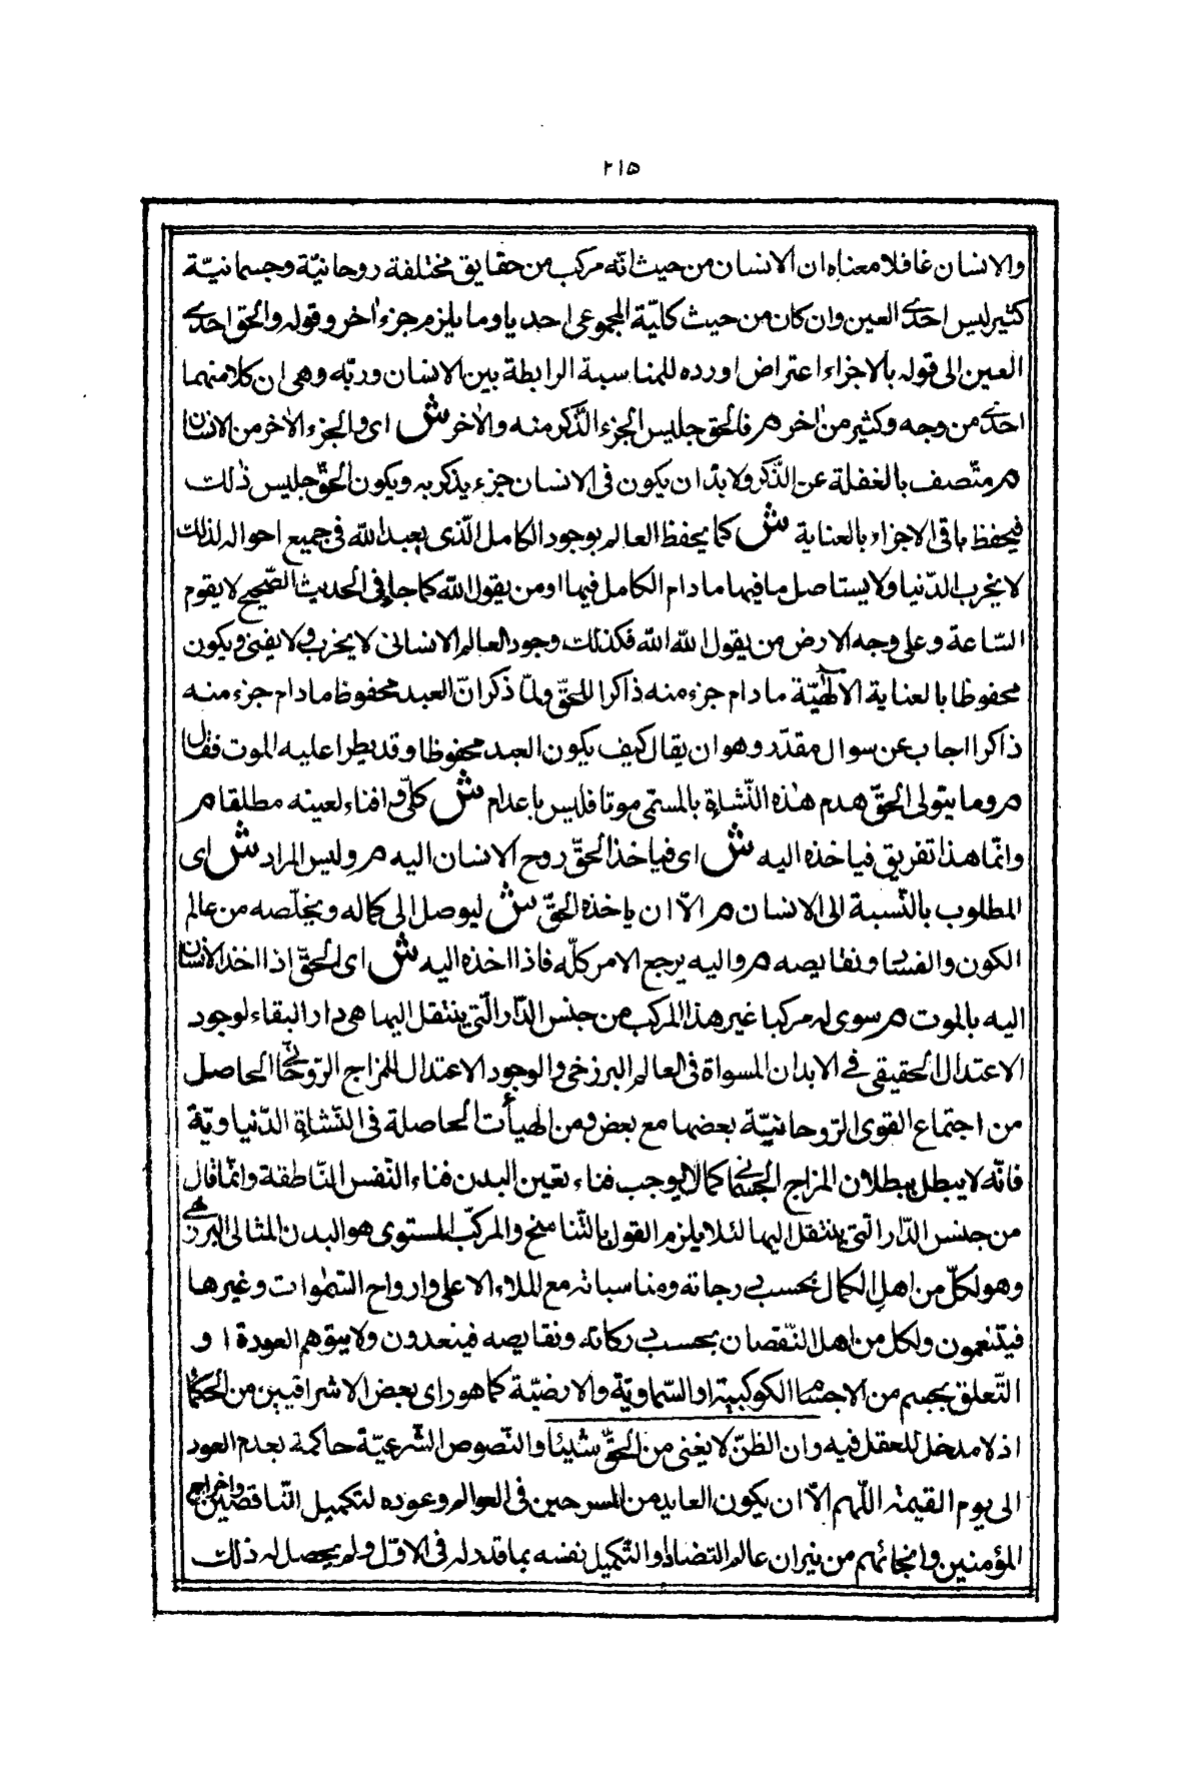 ٢١٥
والانسان غافلا معناه ان الانسان من حيث انّه مركب من حقايق مختلفة روحانيّة وجسمانيّة
كثير ليس احدى العين وان كان من حيث كليّة المجموعى احديا وما يلزم جزء اٰخر وقوله والحق احدى
العين الى قوله بالاجزاء اعتراض اورده للمناسبة الرابطة بين الانسان وربّه وهى ان كلا منهما
احدى من وجه وكثير من اٰخر م فالحق جليس الجزء الذّكر منه والاٰخر ش اى والجزء الاٰخر من الانسان
م متّصف بالغفلة عن الذّكر ولا بدّ ان يكون فى الانسان جزء يذكر به ويكون الحقّ جليس ذٰلك
فيحفظ باقى الاجزاء بالعناية ش كما يحفظ العالم بوجود الكامل الّذى يعبد اللّٰه فى جميع احواله لذلك
لا يخرب الدّنيا ولا يستاصل ما فيها ما دام الكامل فيها او من يقول اللّٰه كما جاء فى الحديث الصّحيح لا يقوم
السّاعة وعلى وجه الارض من يقول اللّٰه اللّٰه فكذلك وجود العالم الانسانى لا يخرب ولا يفنى ويكون
محفوظا بالعناية الالٰهيّة ما دام جزء منه ذاكرا للحقّ ولمّا ذكر انّ العبد محفوظ ما دام جزء منه
ذاكرا اجاب عن سوال مقدّر وهو ان يقال كيف يكون العبد محفوظا وقد يطرا عليه الموت فقال
م وما يتولى الحقّ هدم هٰذه النّشاة بالمسمّى موتا فليس باعدام ش كلّى وافناء لعينه مطلقا م
وانّما هذا تفريق فياخذه اليه ش اى فياخذ الحقّ روح الانسان اليه م وليس المراد ش اى
المطلوب بالنّسبة الى الانسان م الّا ان ياخذه الحقّ ش ليوصل الى كماله ويخلّصه من عالم
الكون والفساد ونقايصه م واليه يرجع الامر كلّه فاذا اخذه اليه ش اى الحقّ اذا اخذ الانسان
اليه بالموت م سوى له مركبا غير هذا المركب من جنس الدّار الّتى ينتقل اليها هى دار البقاء لوجود
الاعتدال الحقيقى فى الابدان المسواة فى العالم البرزخى والوجود الاعتدال للمزاج الرّوحانى الحاصل
من اجتماع القوى الرّوحانيّة بعضها مع بعض ومن الهيأت الحاصلة فى النّشاة الدّنياويّة
فانّه لا يبطل ببطلان المزاج الجسمانى كما لا يوجب فناء تعين البدن فناء النّفس النّاطقة وانّما قال
من جنس الدّار الّتى ينتقل اليها لئلا يلزم القول بالتّناسخ والمركّب المستوى هو البدن المثالى البرزخى
وهو لكلّ من اهل الكمال بحسب درجاته ومناسباته مع الملاء الاعلى وارواح السّمٰوات وغيرها
فيتنعمون ولكل من اهل النّقصان بحسب دركاته ونقايصه فيتعذبون ولا يتوهم العودة او
التّعلق بجسم من الاجسام الكوكبية او السّماويّة والارضيّة كما هو راى بعض الاشراقيين من الحكماء
اذ لا مدخل للعقل فيه وان الظنّ لا يغنى من الحقّ شيئا والنّصوص الشّرعيّة حاكمة بعدم العود
الى يوم القيمة اللّهم الّا ان يكون العايد من المسرحين فى العوالم وعوده لتكميل النّاقصين واخراج
المؤمنين وانجائهم من نيران عالم التضاد او التكميل نفسه بما قدد له فى الاوّل ولم يحصل له ذلك